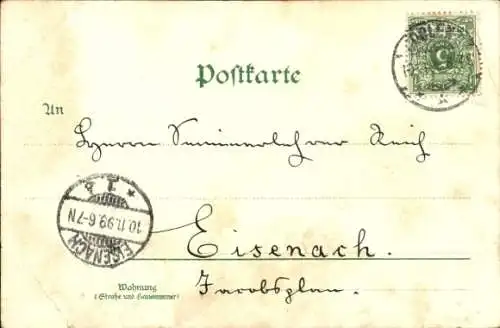 Postkarte
An
Herrn Seminarlehrer Reich
EISENACH
10.11.99.6-7N
Eisenach.
Wohnung
(Straße und Hausnummer)
Jacobsplan.